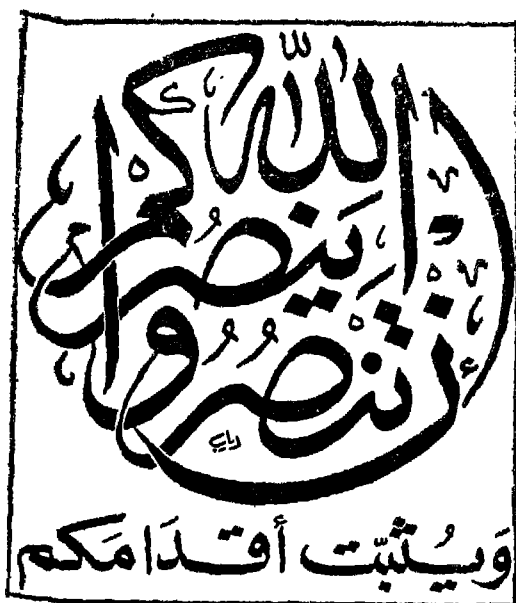 إن تنصُرُوا اللّٰه يَنصُركم
وَيُثبّت أقدَامَكم